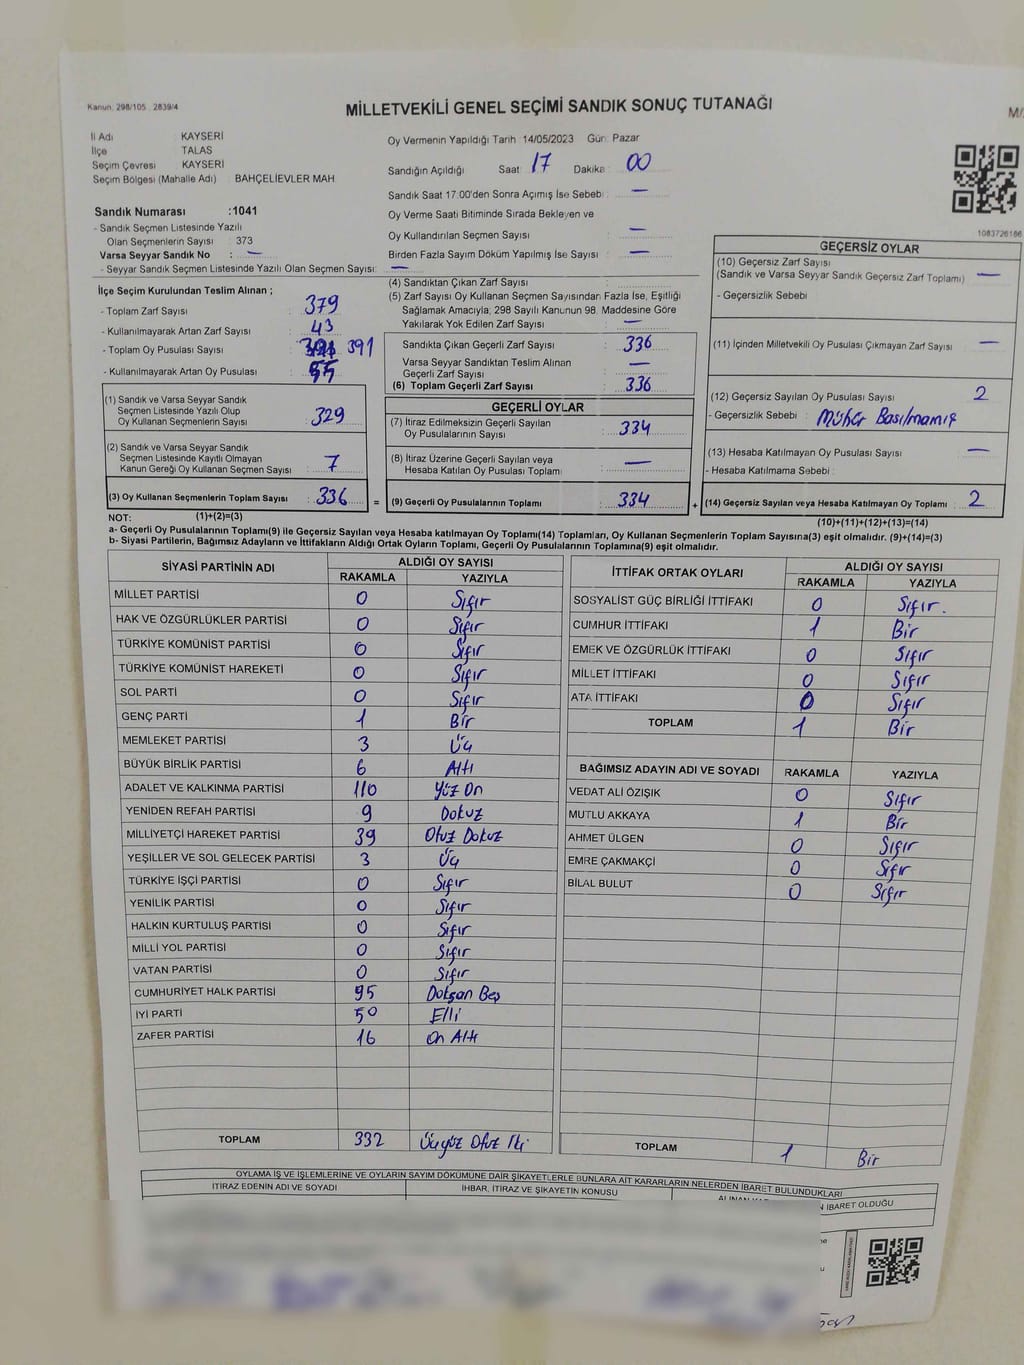 Kanun: 298/105 2839/4
MİLLETVEKİLİ GENEL SEÇİMİ SANDIK SONUÇ TUTANAĞI
İl Adı KAYSERİ
İlçe TALAS
Seçim Çevresi KAYSERİ
Seçim Bölgesi (Mahalle Adı) BAHÇELİEVLER MAH
Sandık Numarası :1041
- Sandık Seçmen Listesinde Yazılı
Olan Seçmenlerin Sayısı : 373
Varsa Seyyar Sandık No : —
- Seyyar Sandık Seçmen Listesinde Yazılı Olan Seçmen Sayısı: —
Oy Vermenin Yapıldığı Tarih 14/05/2023 Gün: Pazar
Sandığın Açıldığı Saat 17 Dakika 00
Sandık Saat 17:00'den Sonra Açımış İse Sebebi : —
Oy Verme Saati Bitiminde Sırada Bekleyen ve
Oy Kullandırılan Seçmen Sayısı —
Birden Fazla Sayım Döküm Yapılmış İse Sayısı —
1083726186
İlçe Seçim Kurulundan Teslim Alınan ;
- Toplam Zarf Sayısı : 379
- Kullanılmayarak Artan Zarf Sayısı : 43
- Toplam Oy Pusulası Sayısı : 391
- Kullanılmayarak Artan Oy Pusulası : 55
(1) Sandık ve Varsa Seyyar Sandık
Seçmen Listesinde Yazılı Olup
Oy Kullanan Seçmenlerin Sayısı : 329
(2) Sandık ve Varsa Seyyar Sandık
Seçmen Listesinde Kayıtlı Olmayan
Kanun Gereği Oy Kullanan Seçmen Sayısı : 7
(3) Oy Kullanan Seçmenlerin Toplam Sayısı : 336 =
(1)+(2)=(3)
(4) Sandıktan Çıkan Zarf Sayısı :
(5) Zarf Sayısı Oy Kullanan Seçmen Sayısından Fazla İse, Eşitliği
Sağlamak Amacıyla; 298 Sayılı Kanunun 98. Maddesine Göre
Yakılarak Yok Edilen Zarf Sayısı : —
Sandıkta Çıkan Geçerli Zarf Sayısı : 336
Varsa Seyyar Sandıktan Teslim Alınan
Geçerli Zarf Sayısı : —
(6) Toplam Geçerli Zarf Sayısı : 336
GEÇERLİ OYLAR
(7) İtiraz Edilmeksizin Geçerli Sayılan
Oy Pusulalarının Sayısı : 334
(8) İtiraz Üzerine Geçerli Sayılan veya
Hesaba Katılan Oy Pusulası Toplamı : —
(9) Geçerli Oy Pusulalarının Toplamı : 334 +
GEÇERSİZ OYLAR
(10) Geçersiz Zarf Sayısı
(Sandık ve Varsa Seyyar Sandık Geçersiz Zarf Toplamı) —
- Geçersizlik Sebebi :
(11) İçinden Milletvekili Oy Pusulası Çıkmayan Zarf Sayısı : —
(12) Geçersiz Sayılan Oy Pusulası Sayısı : 2
- Geçersizlik Sebebi : Mühür Basılmamış
(13) Hesaba Katılmayan Oy Pusulası Sayısı : —
- Hesaba Katılmama Sebebi :
(14) Geçersiz Sayılan veya Hesaba Katılmayan Oy Toplamı : 2
(10)+(11)+(12)+(13)=(14)
NOT:
a- Geçerli Oy Pusulalarının Toplamı(9) ile Geçersiz Sayılan veya Hesaba Katılmayan Oy Toplamı(14) Toplamları, Oy Kullanan Seçmenlerin Toplam Sayısına(3) eşit olmalıdır. (9)+(14)=(3)
b- Siyasi Partilerin, Bağımsız Adayların ve İttifakların Aldığı Ortak Oyların Toplamı, Geçerli Oy Pusulalarının Toplamına(9) eşit olmalıdır.
SİYASİ PARTİNİN ADI ALDIĞI OY SAYISI
RAKAMLA YAZIYLA
MİLLET PARTİSİ 0 Sıfır
HAK VE ÖZGÜRLÜKLER PARTİSİ 0 Sıfır
TÜRKİYE KOMÜNİST PARTİSİ 0 Sıfır
TÜRKİYE KOMÜNİST HAREKETİ 0 Sıfır
SOL PARTİ 0 Sıfır
GENÇ PARTİ 1 Bir
MEMLEKET PARTİSİ 3 Üç
BÜYÜK BİRLİK PARTİSİ 6 Altı
ADALET VE KALKINMA PARTİSİ 110 Yüz On
YENİDEN REFAH PARTİSİ 9 Dokuz
MİLLİYETÇİ HAREKET PARTİSİ 39 Otuz Dokuz
YEŞİLLER VE SOL GELECEK PARTİSİ 3 Üç
TÜRKİYE İŞÇİ PARTİSİ 0 Sıfır
YENİLİK PARTİSİ 0 Sıfır
HALKIN KURTULUŞ PARTİSİ 0 Sıfır
MİLLİ YOL PARTİSİ 0 Sıfır
VATAN PARTİSİ 0 Sıfır
CUMHURİYET HALK PARTİSİ 95 Doksan Beş
İYİ PARTİ 50 Elli
ZAFER PARTİSİ 16 On Altı
TOPLAM 332 Üçyüz Otuz İki
İTTİFAK ORTAK OYLARI ALDIĞI OY SAYISI
RAKAMLA YAZIYLA
SOSYALİST GÜÇ BİRLİĞİ İTTİFAKI 0 Sıfır.
CUMHUR İTTİFAKI 1 Bir
EMEK VE ÖZGÜRLÜK İTTİFAKI 0 Sıfır
MİLLET İTTİFAKI 0 Sıfır
ATA İTTİFAKI 0 Sıfır
TOPLAM 1 Bir
BAĞIMSIZ ADAYIN ADI VE SOYADI RAKAMLA YAZIYLA
VEDAT ALİ ÖZIŞIK 0 Sıfır
MUTLU AKKAYA 1 Bir
AHMET ÜLGEN 0 Sıfır
EMRE ÇAKMAKÇİ 0 Sıfır
BİLAL BULUT 0 Sıfır
TOPLAM 1 Bir
OYLAMA İŞ VE İŞLEMLERİNE VE OYLARIN SAYIM DÖKÜMÜNE DAİR ŞİKAYETLERLE BUNLARA AİT KARARLARIN NELERDEN İBARET BULUNDUKLARI
İTİRAZ EDENİN ADI VE SOYADI İHBAR, İTİRAZ VE ŞİKAYETİN KONUSU İBARET OLDUĞU